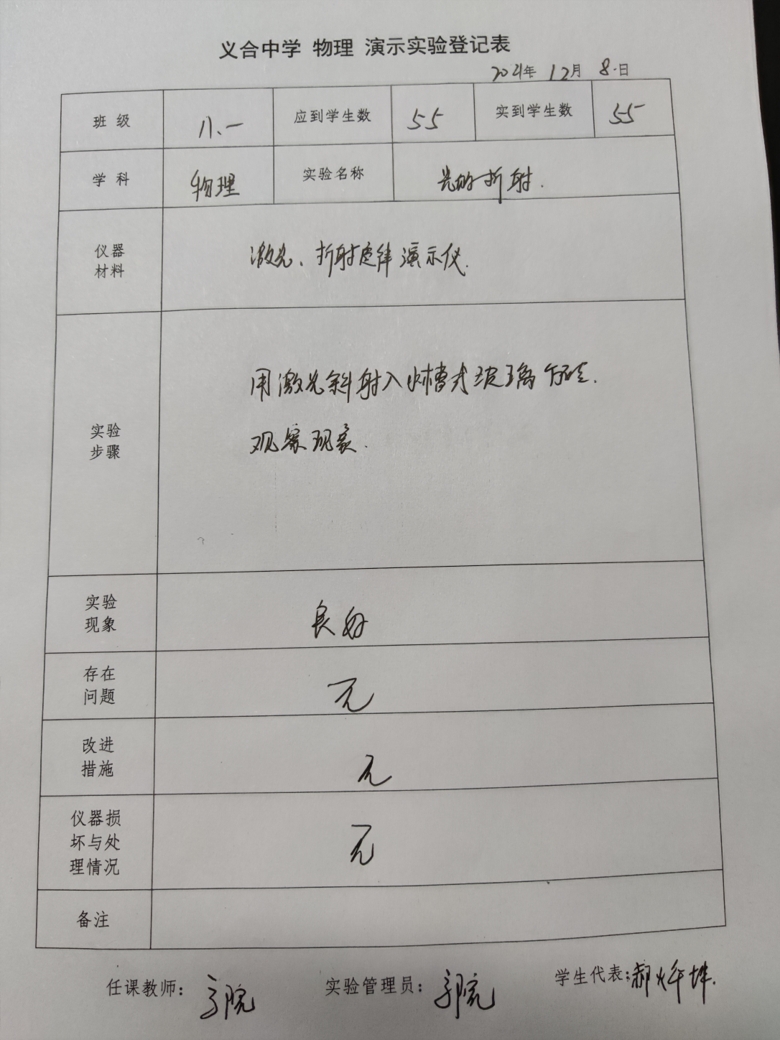 义合中学 物理 演示实验登记表
2021年 12月 8日
班 级 八.一 应到学生数 55 实到学生数 55
学 科 物理 实验名称 光的折射.
仪器
材料
激光、折射定律演示仪.
实验
步骤
用激光斜射入水槽式玻璃砖.
观察现象.
实验
现象
良好
存在
问题
无
改进
措施
无
仪器损
坏与处
理情况
无
备注
任课教师:
实验管理员:
学生代表: